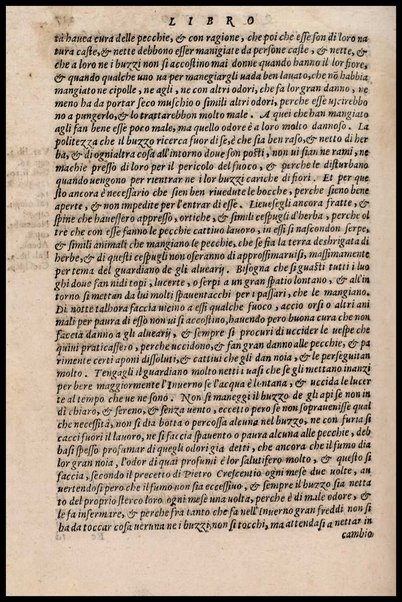 LIBRO
ta hauea cura delle pecchie, & con ragione, che poi che esse son di loro na
tura caste, & nette debbono esser manigiate da persone caste, & nette, &
che a loro ne i buzzi non si accostino mai donne quando hanno il lor fiore,
& quando qualche uno ua per manegiargli uada ben lauato, che nō habbia
mangiato ne cipolle, ne agli, ne con altri odori, che fa lor gran danno, ne
meno ha da portar seco muschio o simili altri odori, perche esse uscirebbo
no a pungerlo, & lo trattarebbon molto male. A quei che han mangiato
agli fan bene esse poco male, ma quello odore è a loro molto dannoso. La
politezza che il buzzo ricerca fuor di se, è che sia ben raso, & netto di her
ba, & di ogni altra cosa all'intorno doue son posti, non ui sian ne rami, ne
machie presso di loro per il pericolo del fuoco, & perche le disturbano
quando uengono per rientrar ne i lor buzzi cariche di fiori. Et per que
sto ancora è necessario che sien ben riuedute le bocche, perche sieno bene
aperte, & non impedite per l'entrar di esse. Lieuesegli ancora fratte, &
spine che hauessero appresso, ortiche, & simili cespugli d'herba, perche ol
tre che con esse fanno le pecchie cattiuo lauoro, in essi si nascondon serpe,
& simili animali che mangiano le pecchie, che se sia la terra desbrigata di
herbe, & di questi cespugli non oseranno di approssimaruisi, massimamente
per tema del guardiano de gli aluearij. Bisogna che si guasti tutti i luo
ghi doue fan nidi topi, lucerte, o serpi a un gran spatio lontano, & all'in
torno si mettan da lui molti spauentacchi per i passari, che le mangiano.
Di notte talhora faccia uicino a essi qualche fuoco, accio orsi o altri ani
mali per paura di esso non ui si accostino, hauendo pero buona cura che non
faccia danno a gli aluearij, & sempre si procuri di uccider le uespe che
quini praticassero, perche uccidono, & fan gran danno alle pecchie, & pa
rimente certi aponi dissoluti, & cattiui che gli dan noia, & le perseguitan
molto. Tengagli il guardiano molto netti i uasi che se gli mettano inanzi
per bere maggiormente l'Inuerno se l'acqua è lontana, & uccida le lucer
te al tempo che ue ne sono. Non si maneggi il buzzo de gli api se non in
di chiaro, & sereno, & senza uento, eccetto pero se non soprauenisse qual
che necessità, non si dia botta o percossa alcuna nel buzzo, ne con furia si
cacci fuori il lauoro, ne si faccia spauento o paura alcuna alle pecchie, deb
basi spesso profumar di quegli odori gia detti, che ancora che il fumo dia
lor gran noia, l'odor di quai profumi è lor salutifero molto, & questo si
faccia, secondo il precetto di Pietro Crescentio ogni mese due uolte, au
uertendosi pero che il fumo non sia eccessiuo, & sempre il buzzo sia netta
to del proprio sterco loro ogni mese una uolta, perche è di male odore, &
le fa infermare, & perche fra tanto che fa nell'Inuerno gran freddi non si
ha da toccar cosa ueruna ne i buzzi, non si tocchi, ma attendasi a nettar in
cambio